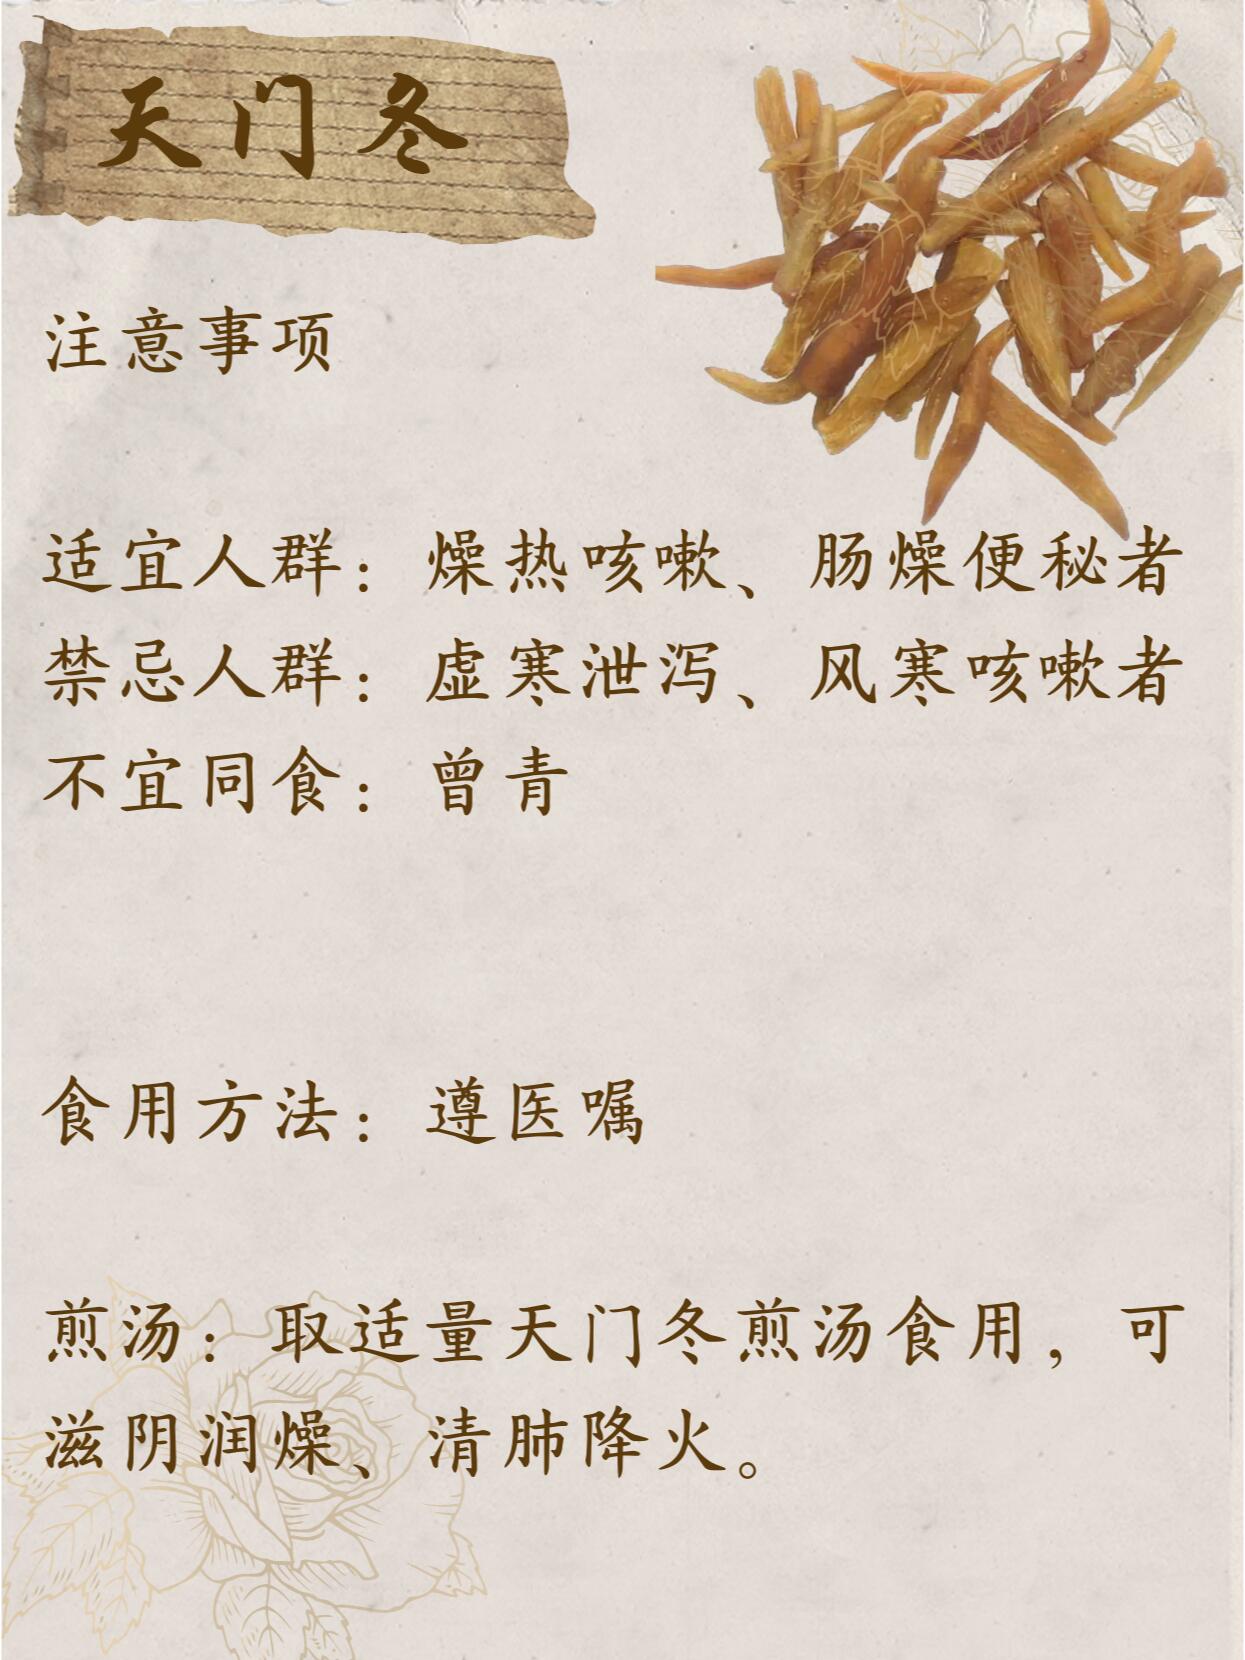 天门冬
注意事项
适宜人群：燥热咳嗽、肠燥便秘者
禁忌人群：虚寒泄泻、风寒咳嗽者
不宜同食：曾青
食用方法：遵医嘱
煎汤：取适量天门冬煎汤食用，可
滋阴润燥、清肺降火。